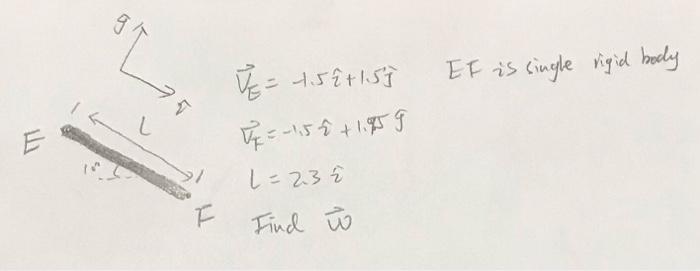 ĵ
î
L
E
F
V⃗_E = -1.5î+1.5ĵ
V⃗_F = -1.5 î + 1.95 ĵ
L = 2.3 î
Find ω⃗
EF is single rigid body